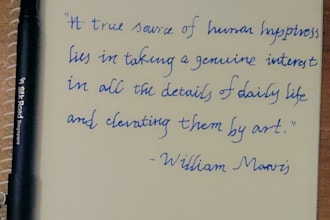 "A true source of human happiness
lies in taking a genuine interest
in all the details of daily life
and elevating them by art."
- William Morris
Silk Road